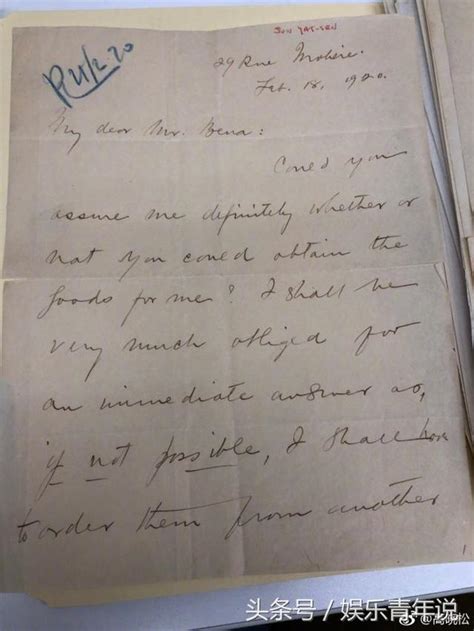 SUN YAT-SEN
R 21/2.20
29 Rue Molière.
Feb. 18, 1920.
My dear Mr. Bena:
Could you
assure me definitely whether or
not you could obtain the
goods for me? I shall be
very much obliged for
an immediate answer as,
if not possible, I shall have
to order them from another
头条号 / 娱乐青年说
@高晓松